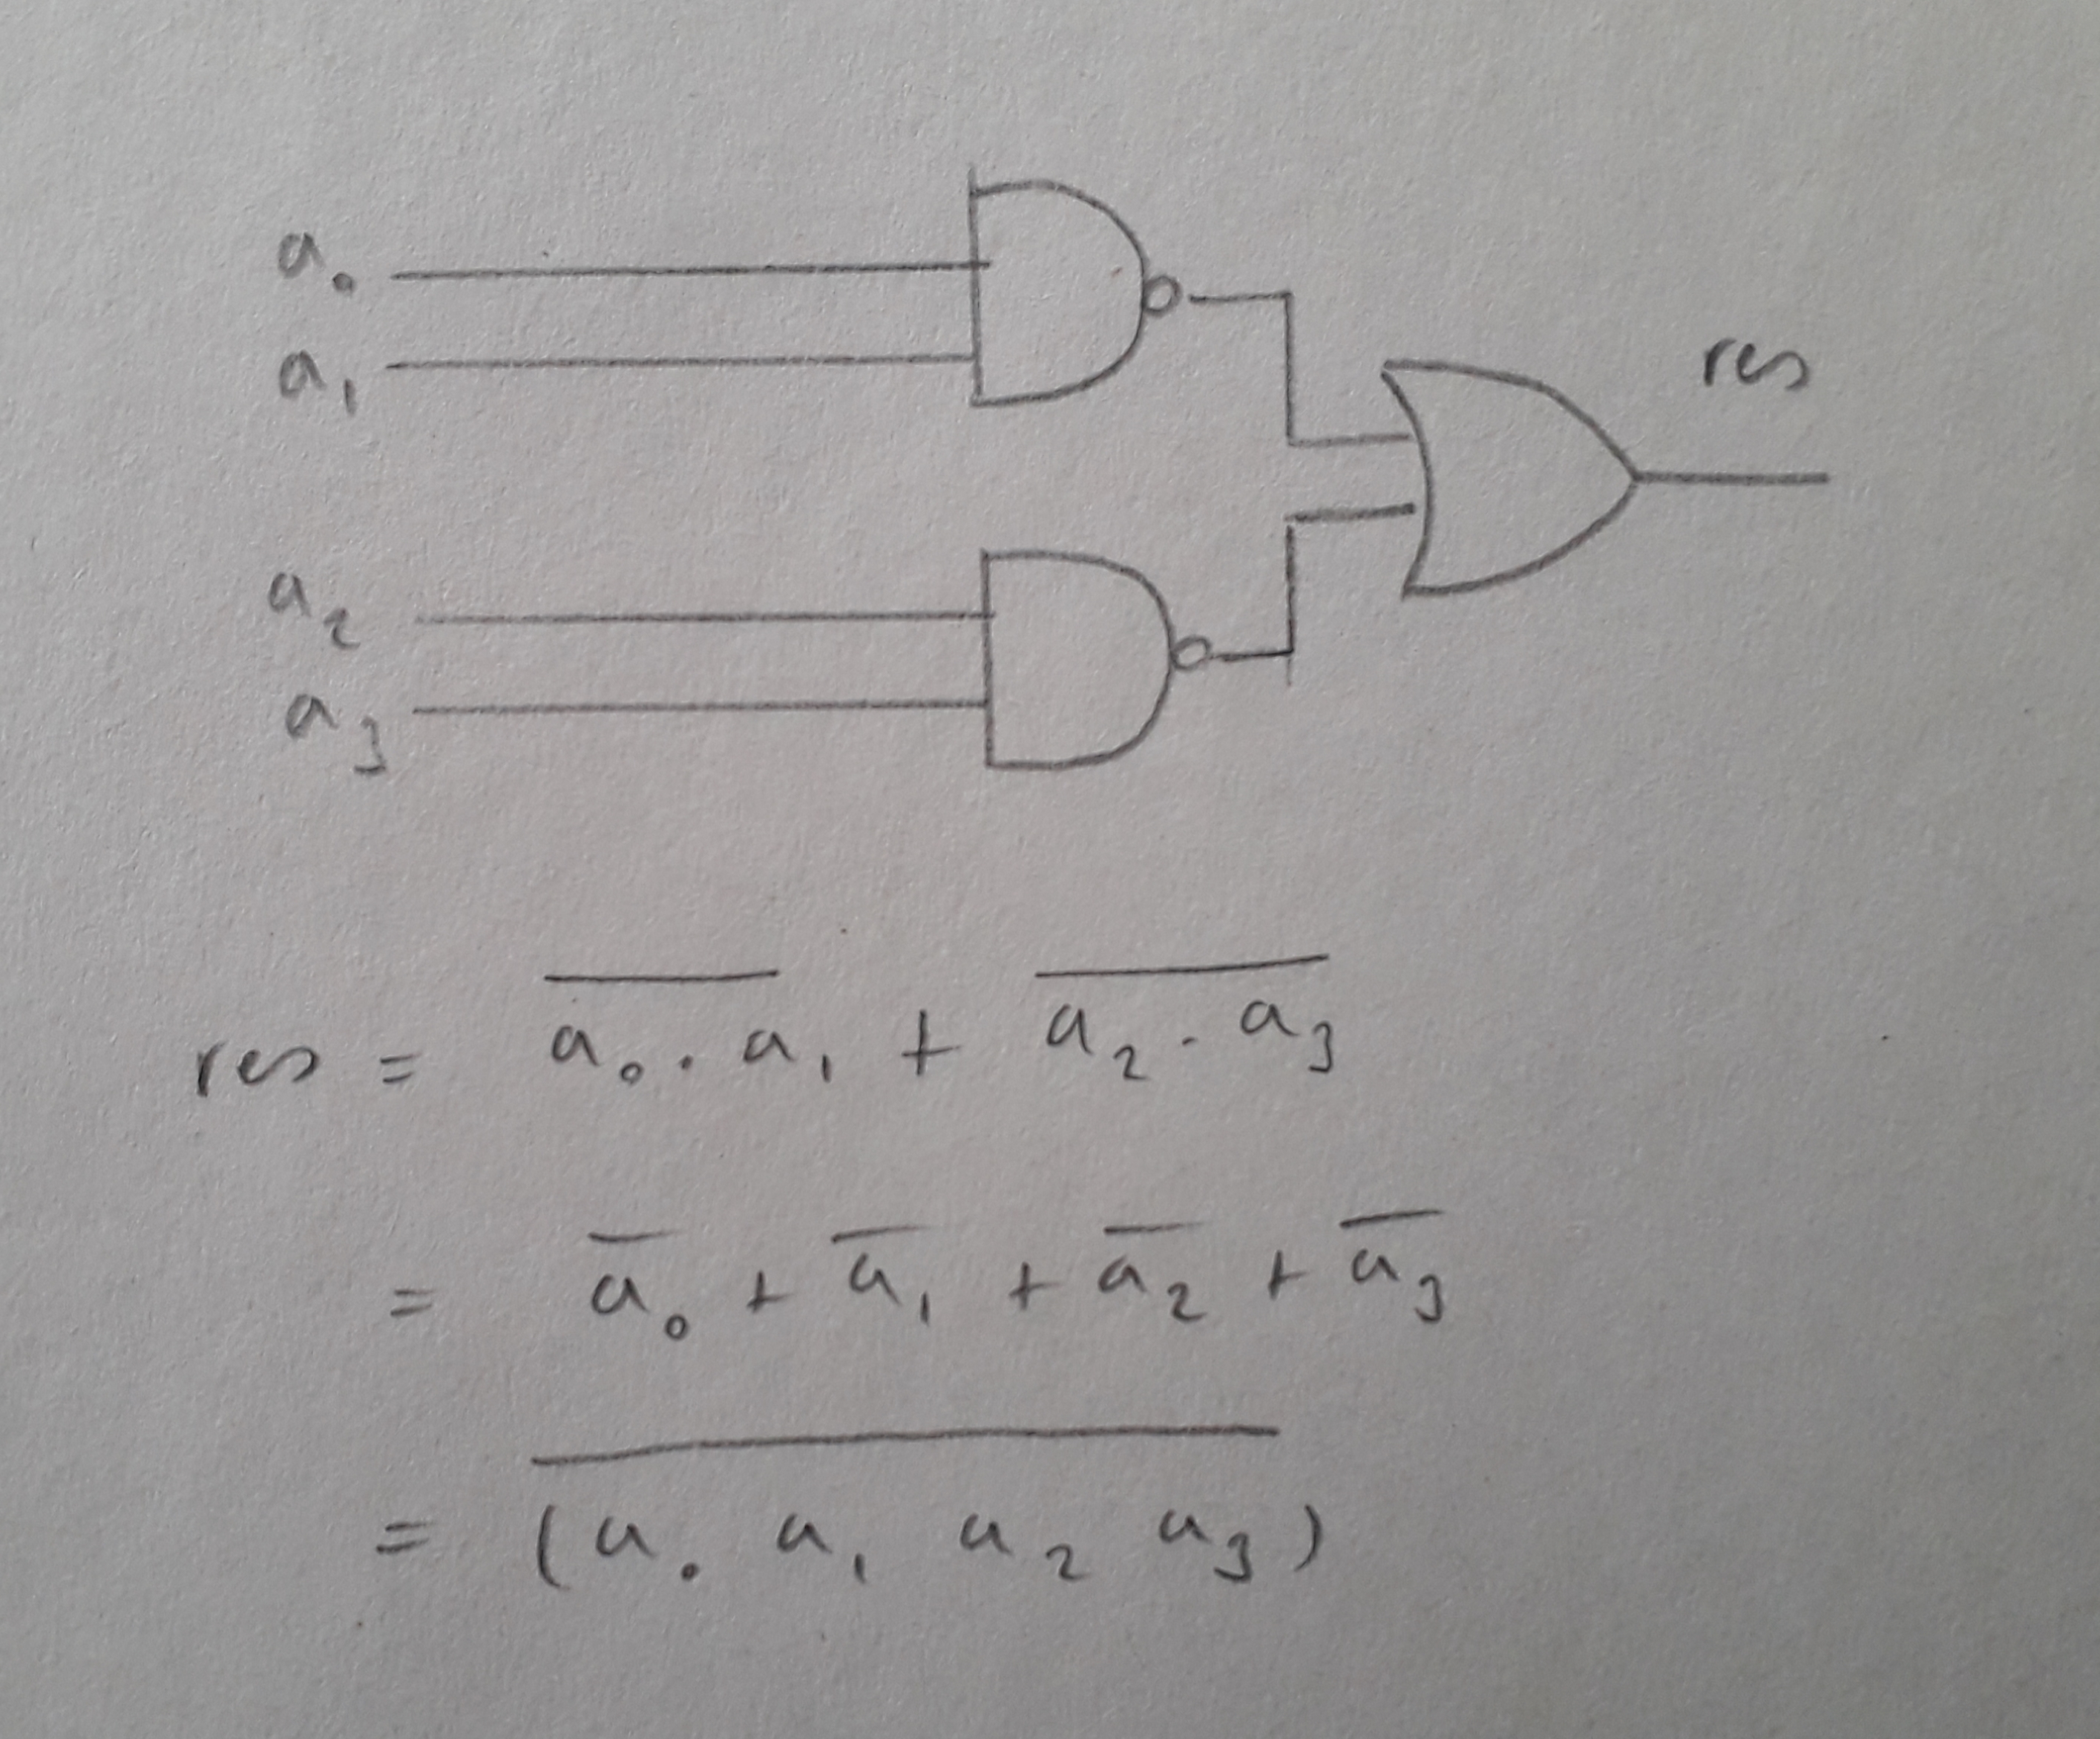 a₀
a₁
res
a₂
a₃
res = \overline{a₀ . a₁} + \overline{a₂ . a₃}
= \overline{a}₀ + \overline{a}₁ + \overline{a}₂ + \overline{a}₃
= \overline{(a₀ a₁ a₂ a₃)}